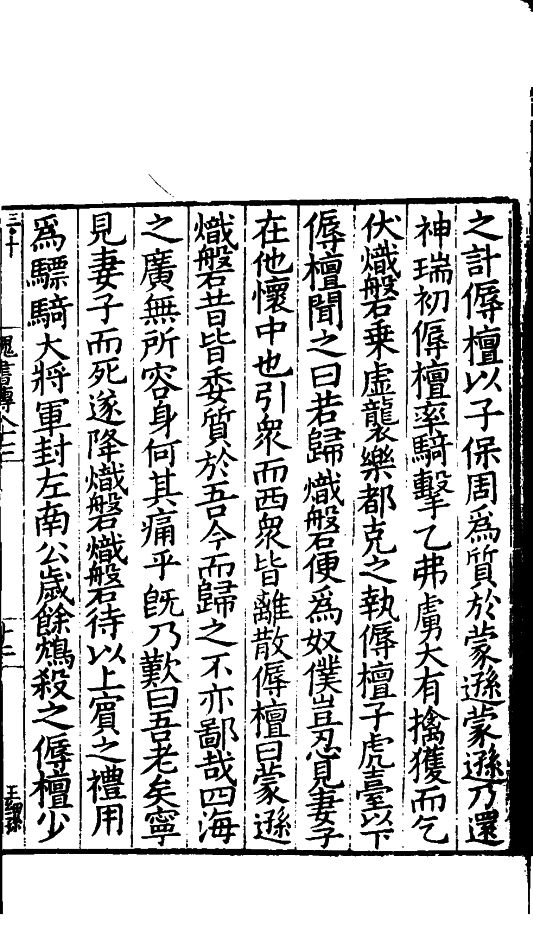 之計傉檀以子保周爲質於蒙遜蒙遜乃還
神瑞初傉檀率騎擊乙弗虜大有擒獲而乞
伏熾磐乗虚襲樂都克之執傉檀子虎臺以下
傉檀聞之曰若歸熾磐便爲奴僕豈忍見妻子
在他懷中也引衆而西衆皆離散傉檀曰蒙遜
熾磐昔皆委質於吾今而歸之不亦鄙哉四海
之廣無所容身何其痛乎旣乃歎曰吾老矣寧
見妻子而死遂降熾磐熾磐待以上賔之禮用
爲驃騎大將軍封左南公歳餘鴆殺之傉檀少
三百十
魏書傳八十七
十二